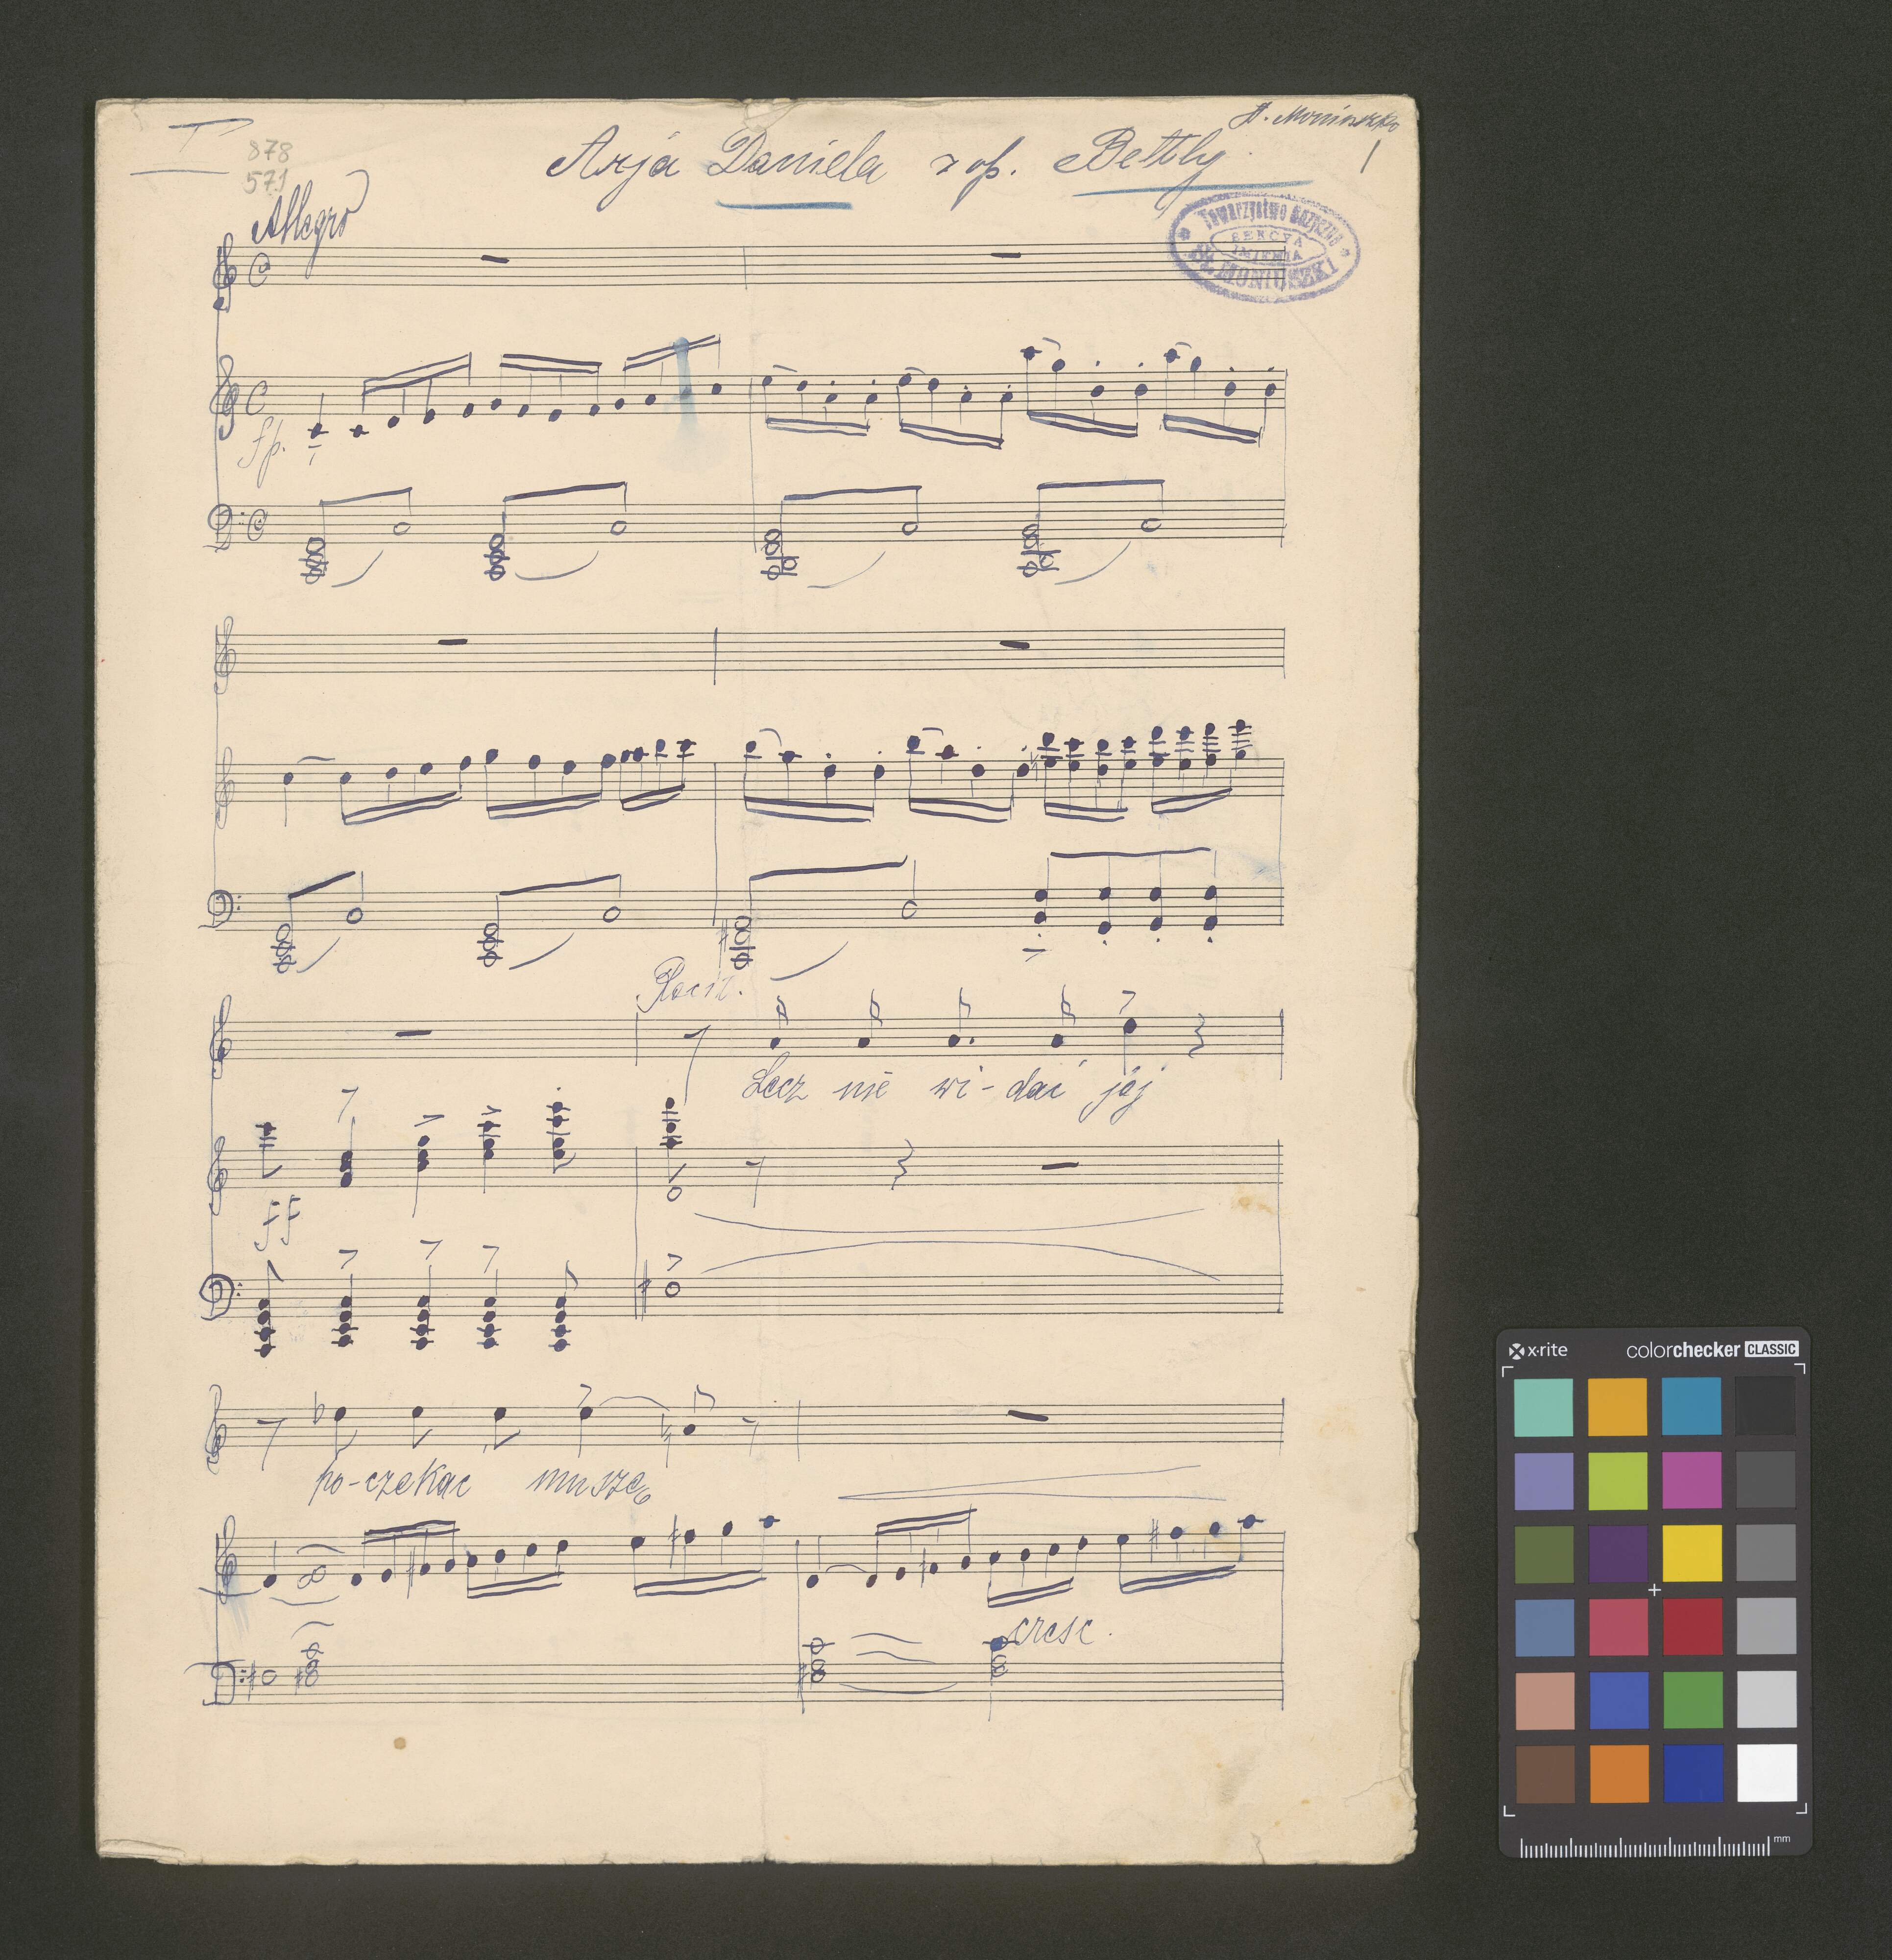 I
878
571
S. Moniuszko
1
Arja Daniela z op. Bettly.
Allegro
Towarzystwo Muzyczne
SEKCYA
IMIENIA
ST. MONIUSZKI
fp.
Recit.
Lecz nie wi-dać jej
ff
po-czekać muszę
cresc.
x·rite colorchecker CLASSIC
mm